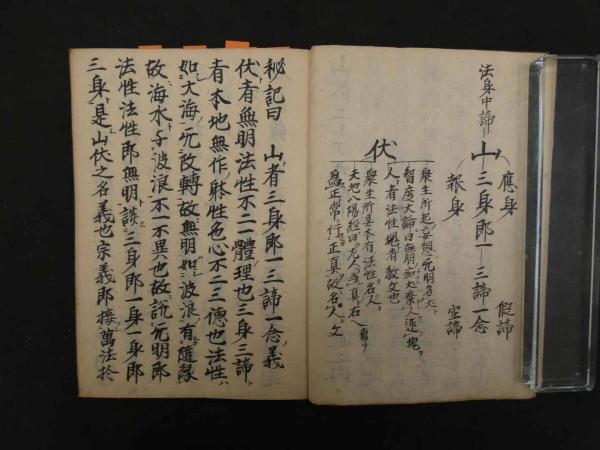 應身 假諦
法身中諦 山 三身即一 三諦一念
報身 空諦
伏
衆生所起妄想无明為犬
智度大論曰無明為犬衆人逐塊
人者法性規者教文也
衆生所具本有法性名人
天地八陽經曰
為正常行正真故名人文
秘記曰 山者三身即一三諦一念義
伏者無明法性不二一體理也三身三諦
者本地無作躰性色心不二三德也法性
如大海无改轉故無明如波浪有隨緣
故海水與波浪不一不異也故說无明即
法性法性即無明談三身即一身一身即
三身是山伏之名義也宗義即接萬法於